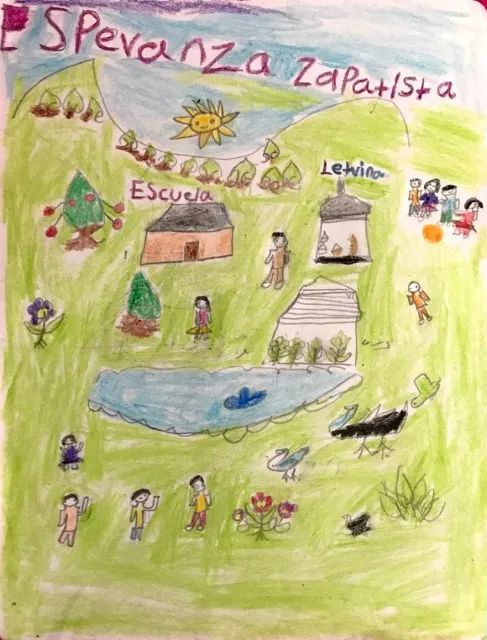 ESPeranza zaPatista
EScuela
Letrina